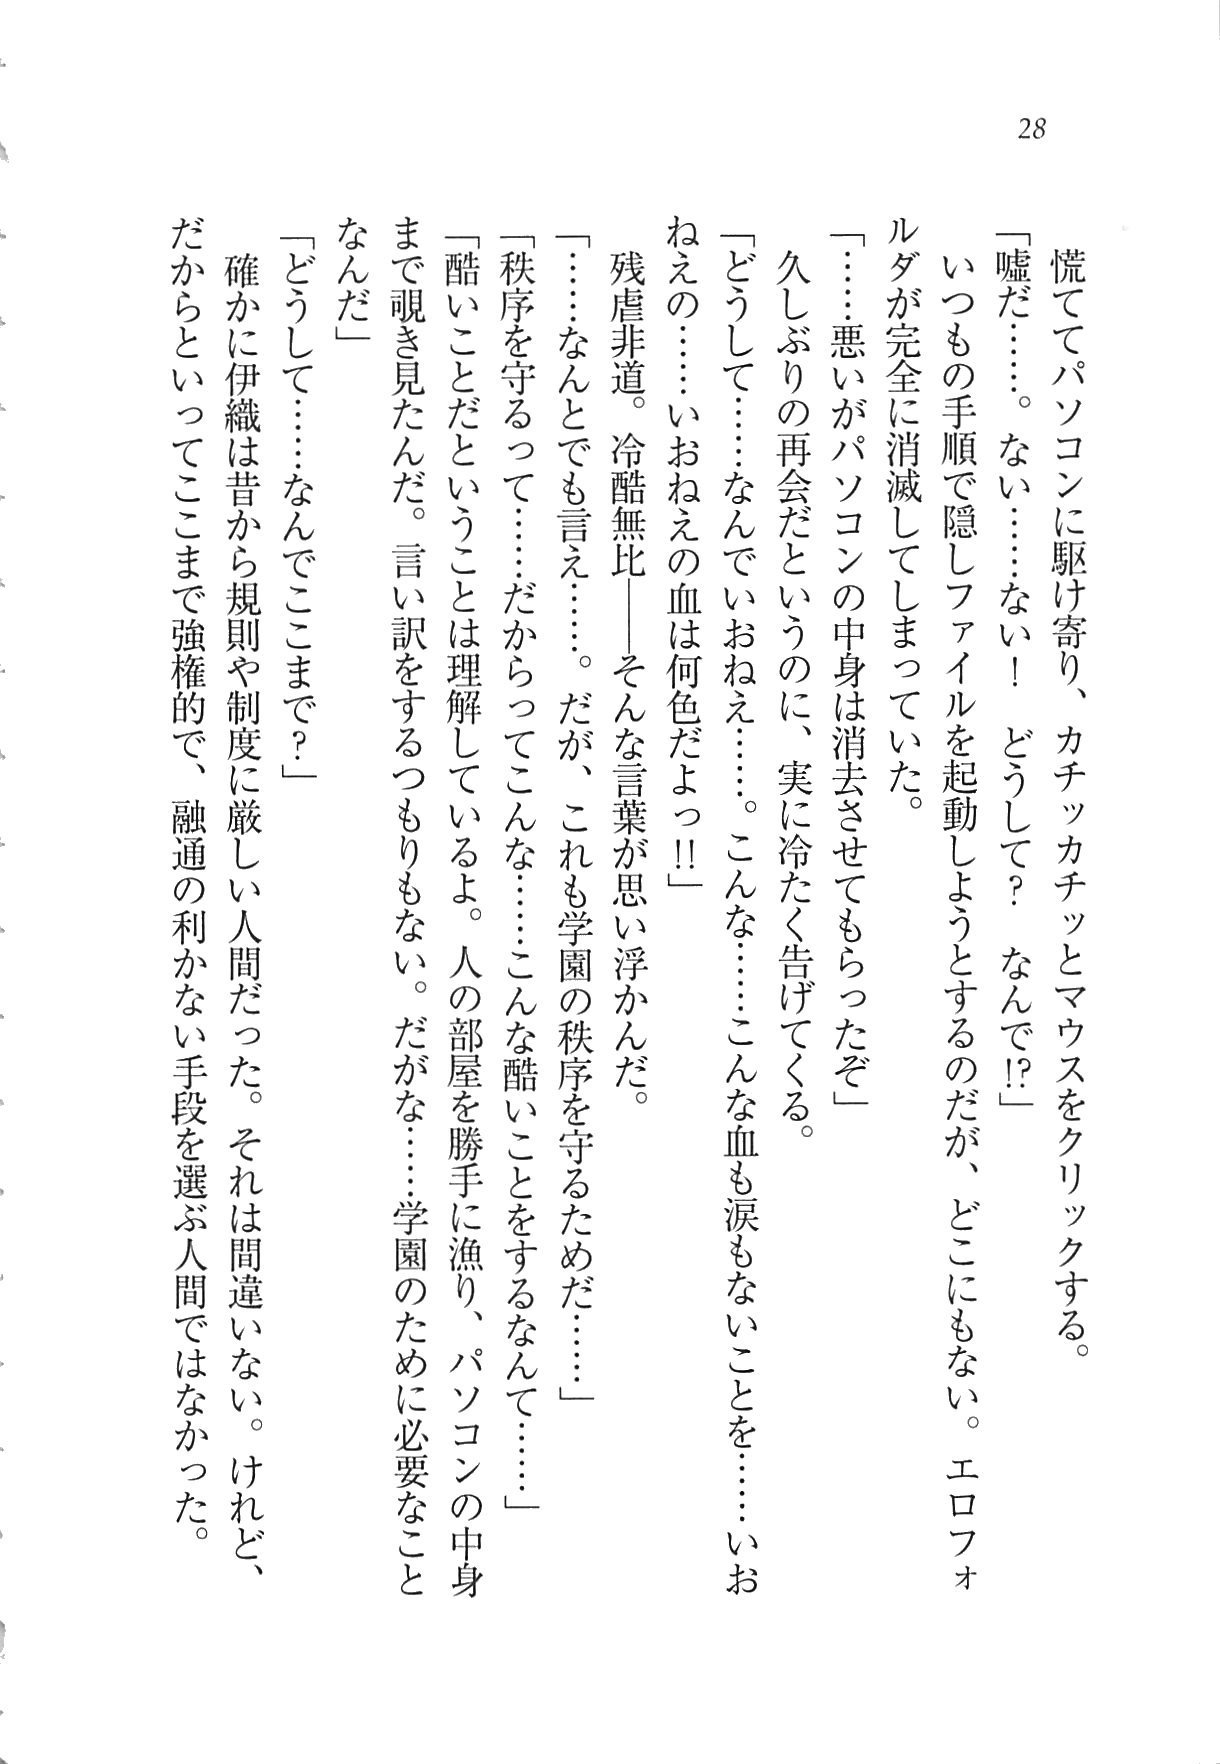 28
慌ててパソコンに駆け寄り、カチッカチッとマウスをクリックする。
「嘘だ……。ない……ない！　どうして？　なんで!?」
いつもの手順で隠しファイルを起動しようとするのだが、どこにもない。エロフォ
ルダが完全に消滅してしまっていた。
「……悪いがパソコンの中身は消去させてもらったぞ」
久しぶりの再会だというのに、実に冷たく告げてくる。
「どうして……なんでいおねえ……。こんな……こんな血も涙もないことを……いお
ねえの……いおねえの血は何色だよっ!!」
残虐非道。冷酷無比――そんな言葉が思い浮かんだ。
「……なんとでも言え……。だが、これも学園の秩序を守るためだ……」
「秩序を守るって……だからってこんな……こんな酷いことをするなんて……」
「酷いことだということは理解しているよ。人の部屋を勝手に漁り、パソコンの中身
まで覗き見たんだ。言い訳をするつもりもない。だがな……学園のために必要なこと
なんだ」
「どうして……なんでここまで？」
確かに伊織は昔から規則や制度に厳しい人間だった。それは間違いない。けれど、
だからといってここまで強権的で、融通の利かない手段を選ぶ人間ではなかった。